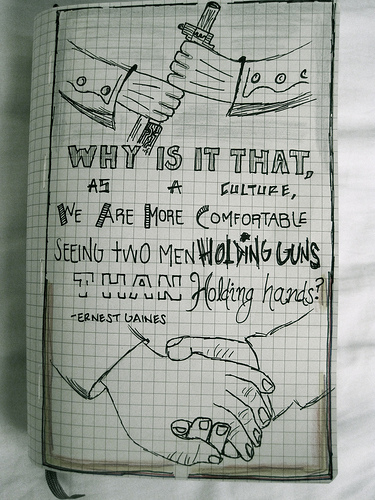 WHY IS IT THAT,
AS A CULTURE,
WE ARE MORE COMFORTABLE
SEEING TWO MEN HOLDING GUNS
THAN Holding hands?
-ERNEST GAINES